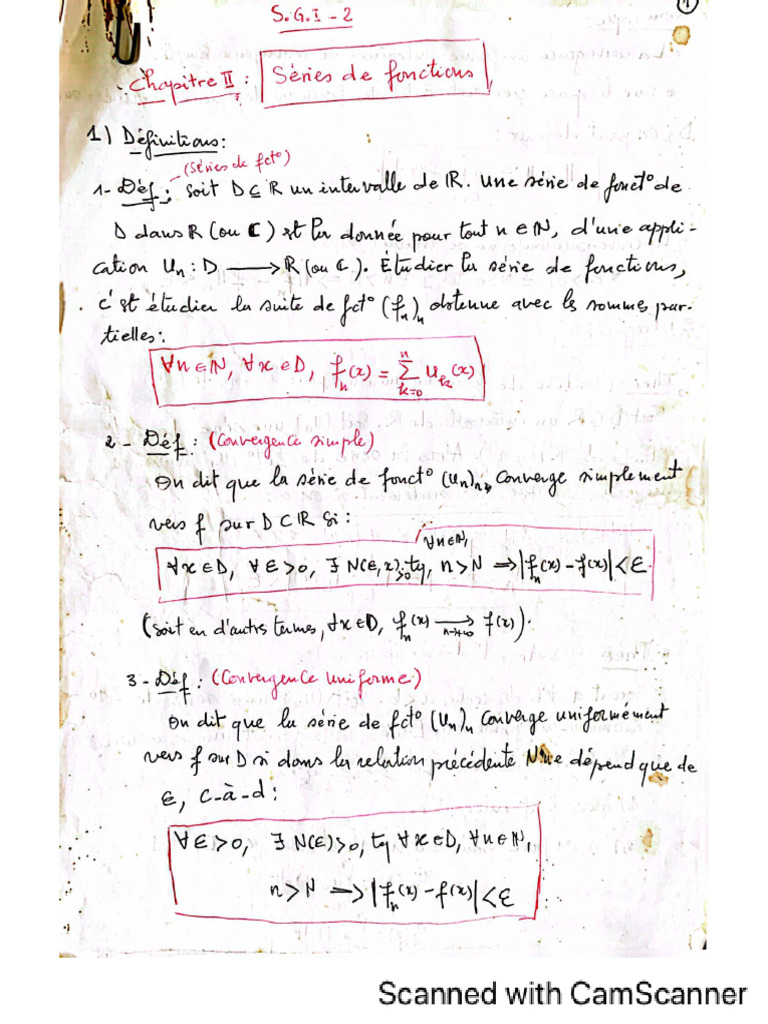 S.G.I - 2
1
Chapitre II : Séries de fonctions
1) Définitions :
(Séries de fct°)
1- Déf : soit D ⊆ R un intervalle de R. Une série de fonct° de
D dans R (ou C) est la donnée pour tout n ∈ N, d'une appli-
cation Un : D → R (ou C). Étudier la série de fonctions,
c'est étudier la suite de fct° (fn)n obtenue avec les sommes par-
tielles :
∀n ∈ N, ∀x ∈ D, fn(x) = Σ_{k=0}^{n} Uk(x)
2 - Déf : (Convergence simple)
On dit que la série de fonct° (Un)n converge simplement
vers f sur D ⊂ R si :
∀n ∈ N,
∀x ∈ D, ∀ε > 0, ∃ N(ε,x) > 0 tq, n > N ⇒ |fn(x) - f(x)| < ε
(soit en d'autres termes, ∀x ∈ D, fn(x) → f(x)).
n→+∞
3 - Déf : (Convergence uniforme)
On dit que la série de fct° (Un)n converge uniformément
vers f sur D si dans la relation précédente N ne dépend que de
ε, c-à-d :
∀ε > 0, ∃ N(ε) > 0, tq ∀x ∈ D, ∀n ∈ N,
n > N → |fn(x) - f(x)| < ε
Scanned with CamScanner